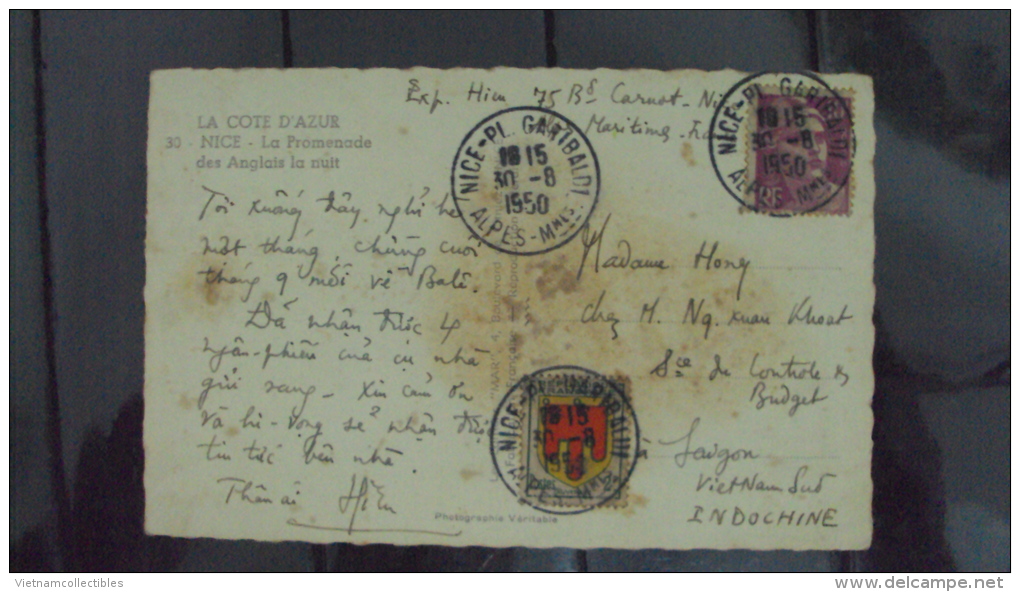 Exp. Hiên 75 Bd Carnot - Ni
Maritimes - Fran
LA COTE D'AZUR
30 - NICE - La Promenade
des Anglais la nuit
NICE-PL. GARIBALDI
18 15
30 -8
1950
ALPES-MMES.
NICE-PL. GARIBALDI
18 15
30 -8
1950
ALPES-MMES.
Tôi xuống đây nghỉ hè
một tháng, chừng cuối
tháng 9 mới về Balê.
Đã nhận được 4
ngân-phiếu của cụ nhà
gửi sang. Xin cảm ơn
và hi-vọng sẽ nhận được
tin tức bên nhà.
Thân ái Hiên
Madame Hong
chez M. Ng. xuan Khoat
Sce du Controle &
Budget
à Saigon
VietNam Sud
INDOCHINE
18 15
30 -8
1950
Photographie Véritable
Vietnamcollectibles
http://www.delcampe.net